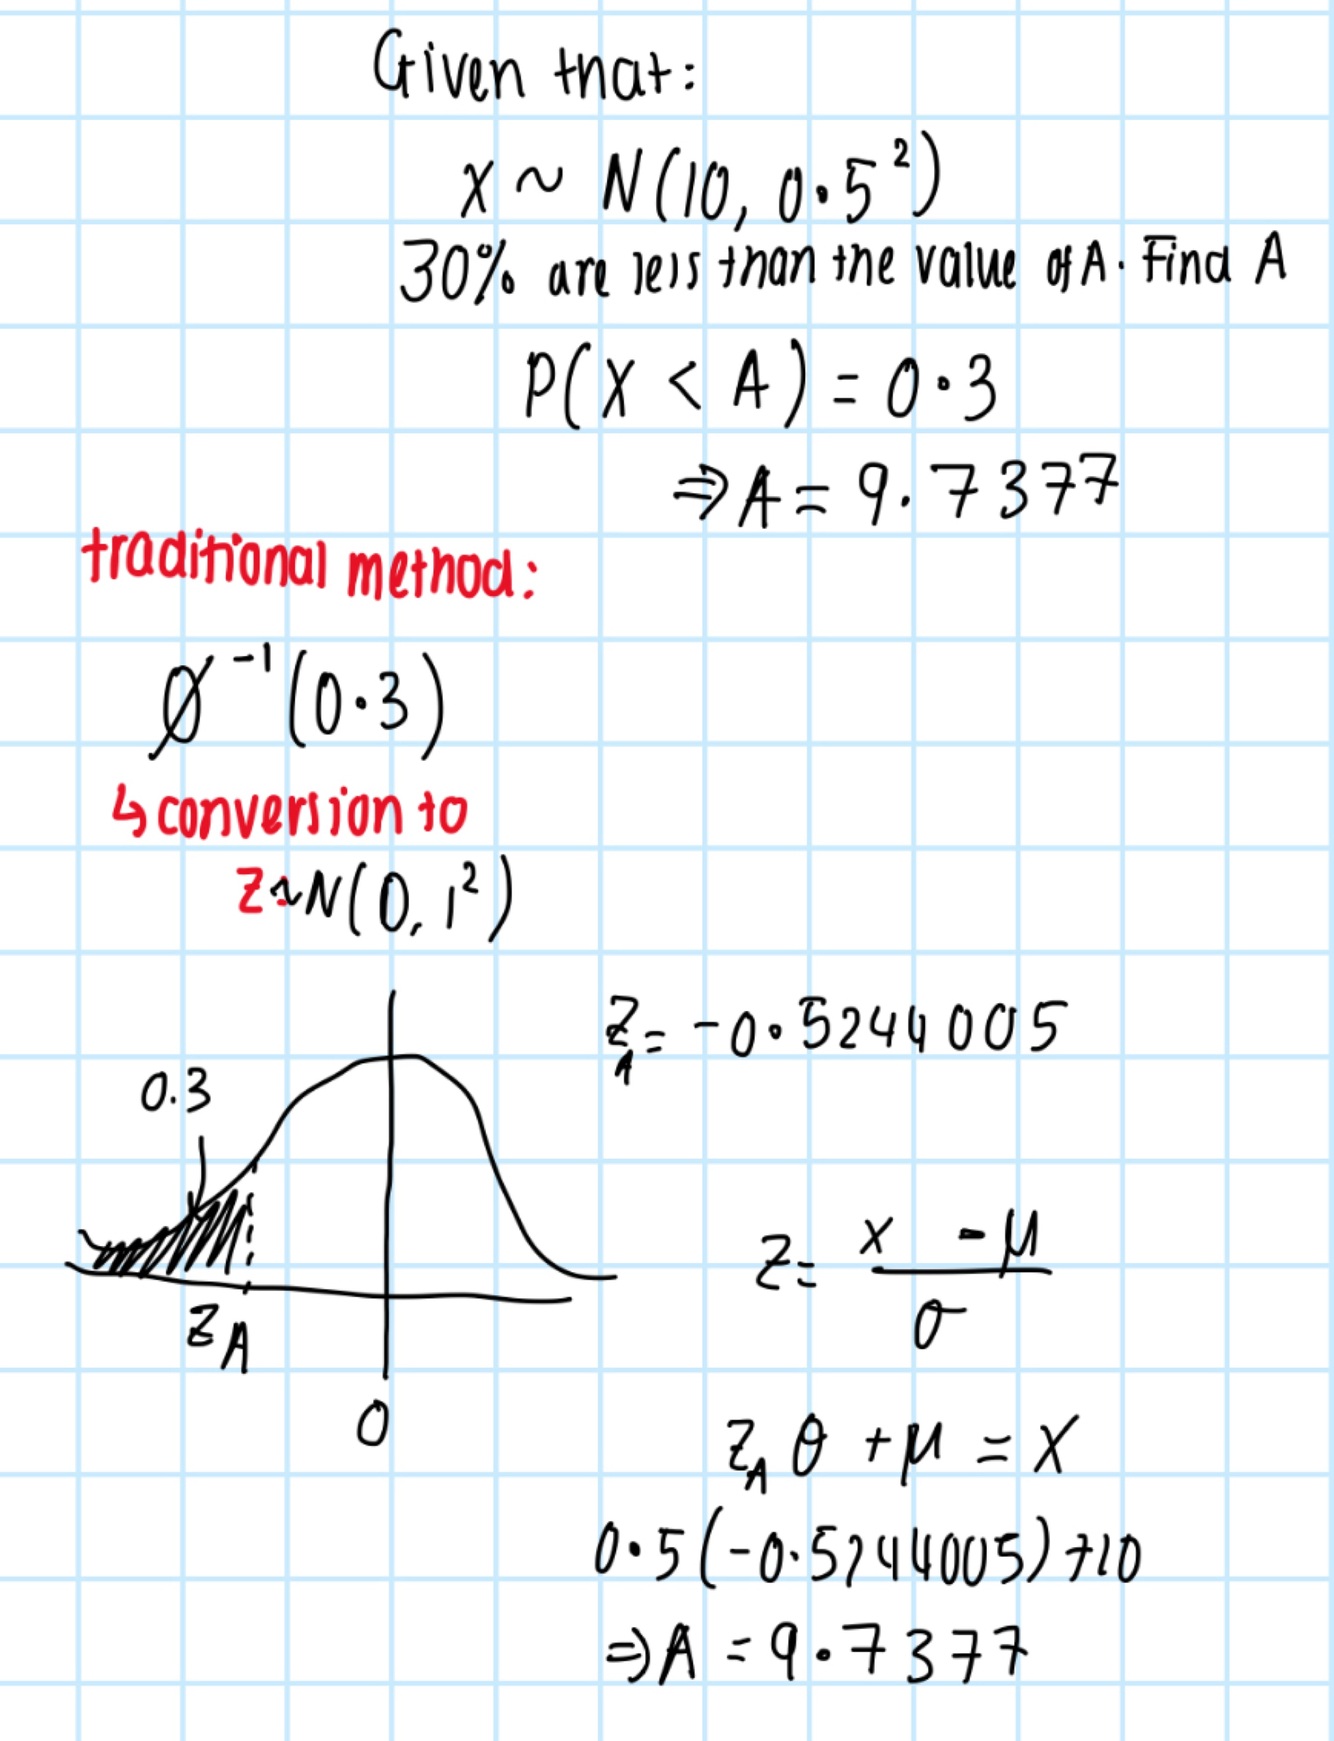 Given that:
X ~ N(10, 0.5²)
30% are less than the value of A. Find A
P(X < A) = 0.3
⇒ A = 9.7377
traditional method:
Ø⁻¹(0.3)
↳ conversion to
Z ~ N(0, 1²)
0.3
Z_A
0
Z_A = -0.5244005
Z = (x - μ) / σ
Z_A θ + μ = X
0.5(-0.5244005) + 10
⇒ A = 9.7377